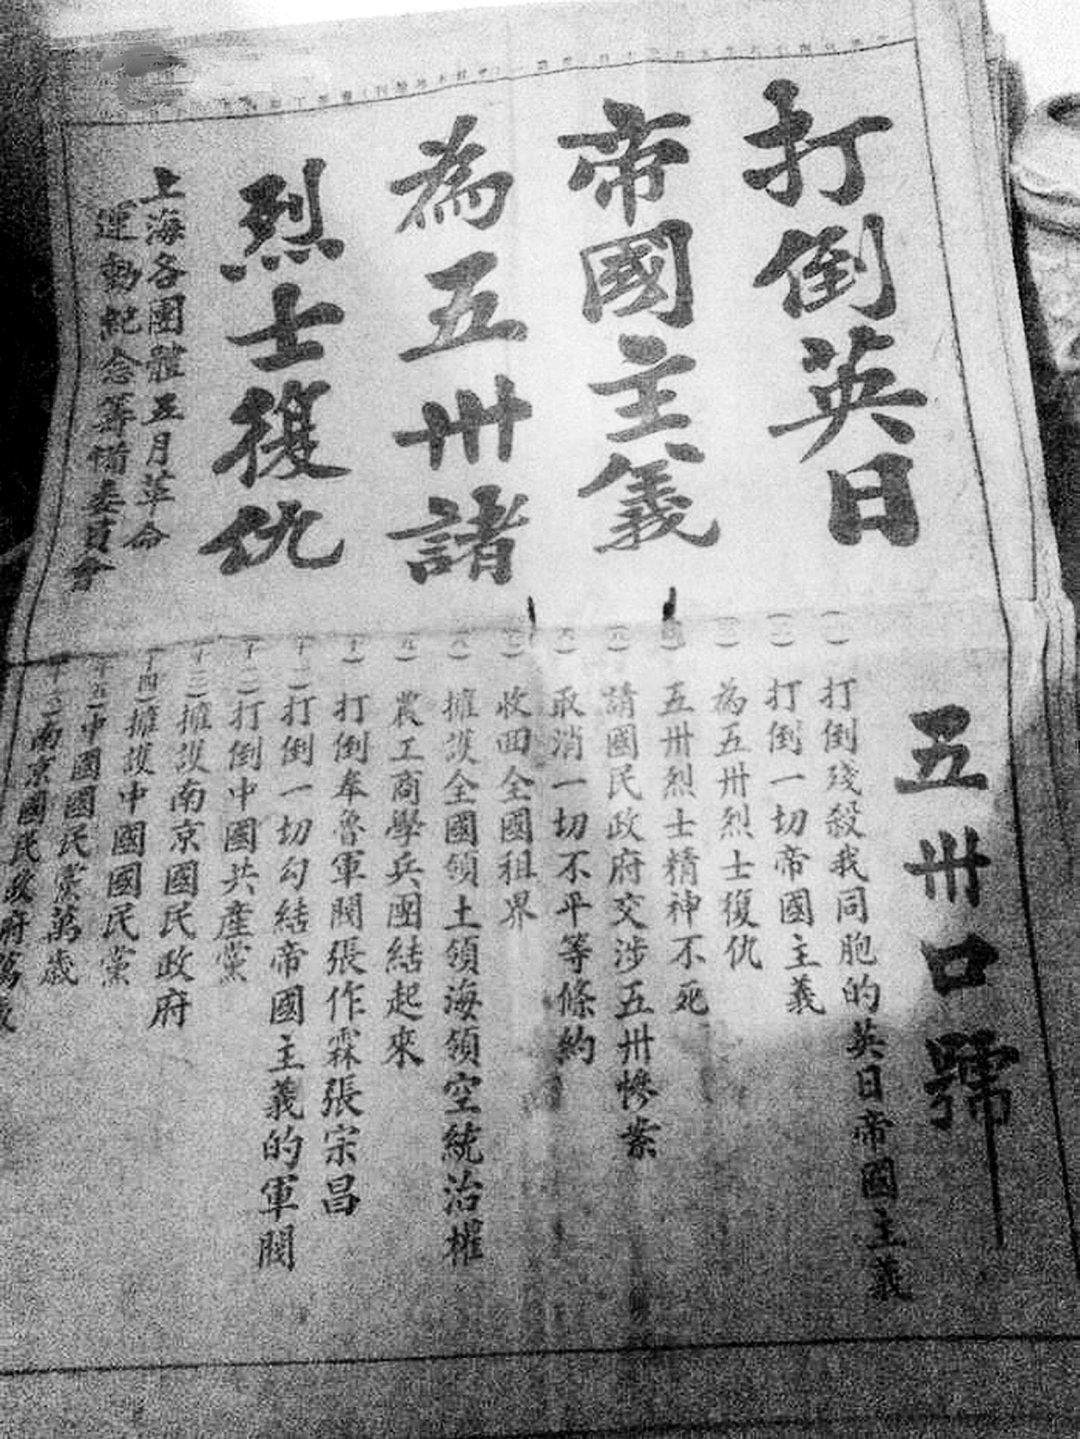 打倒英日
帝國主義
為五卅諸
烈士復仇
上海各團體五月革命
運動紀念籌備委員會
五卅口號
(一)打倒殘殺我同胞的英日帝國主義
(二)打倒一切帝國主義
(三)為五卅烈士復仇
(四)五卅烈士精神不死
(五)請國民政府交涉五卅慘案
(六)取消一切不平等條約
(七)收回全國租界
(八)擁護全國領土領海領空統治權
(九)農工商學兵團結起來
(十)打倒奉魯軍閥張作霖張宗昌
(十一)打倒一切勾結帝國主義的軍閥
(十二)打倒中國共產黨
(十三)擁護南京國民政府
(十四)擁護中國國民黨
(十五)中國國民黨萬歲
(十六)南京國民政府萬歲